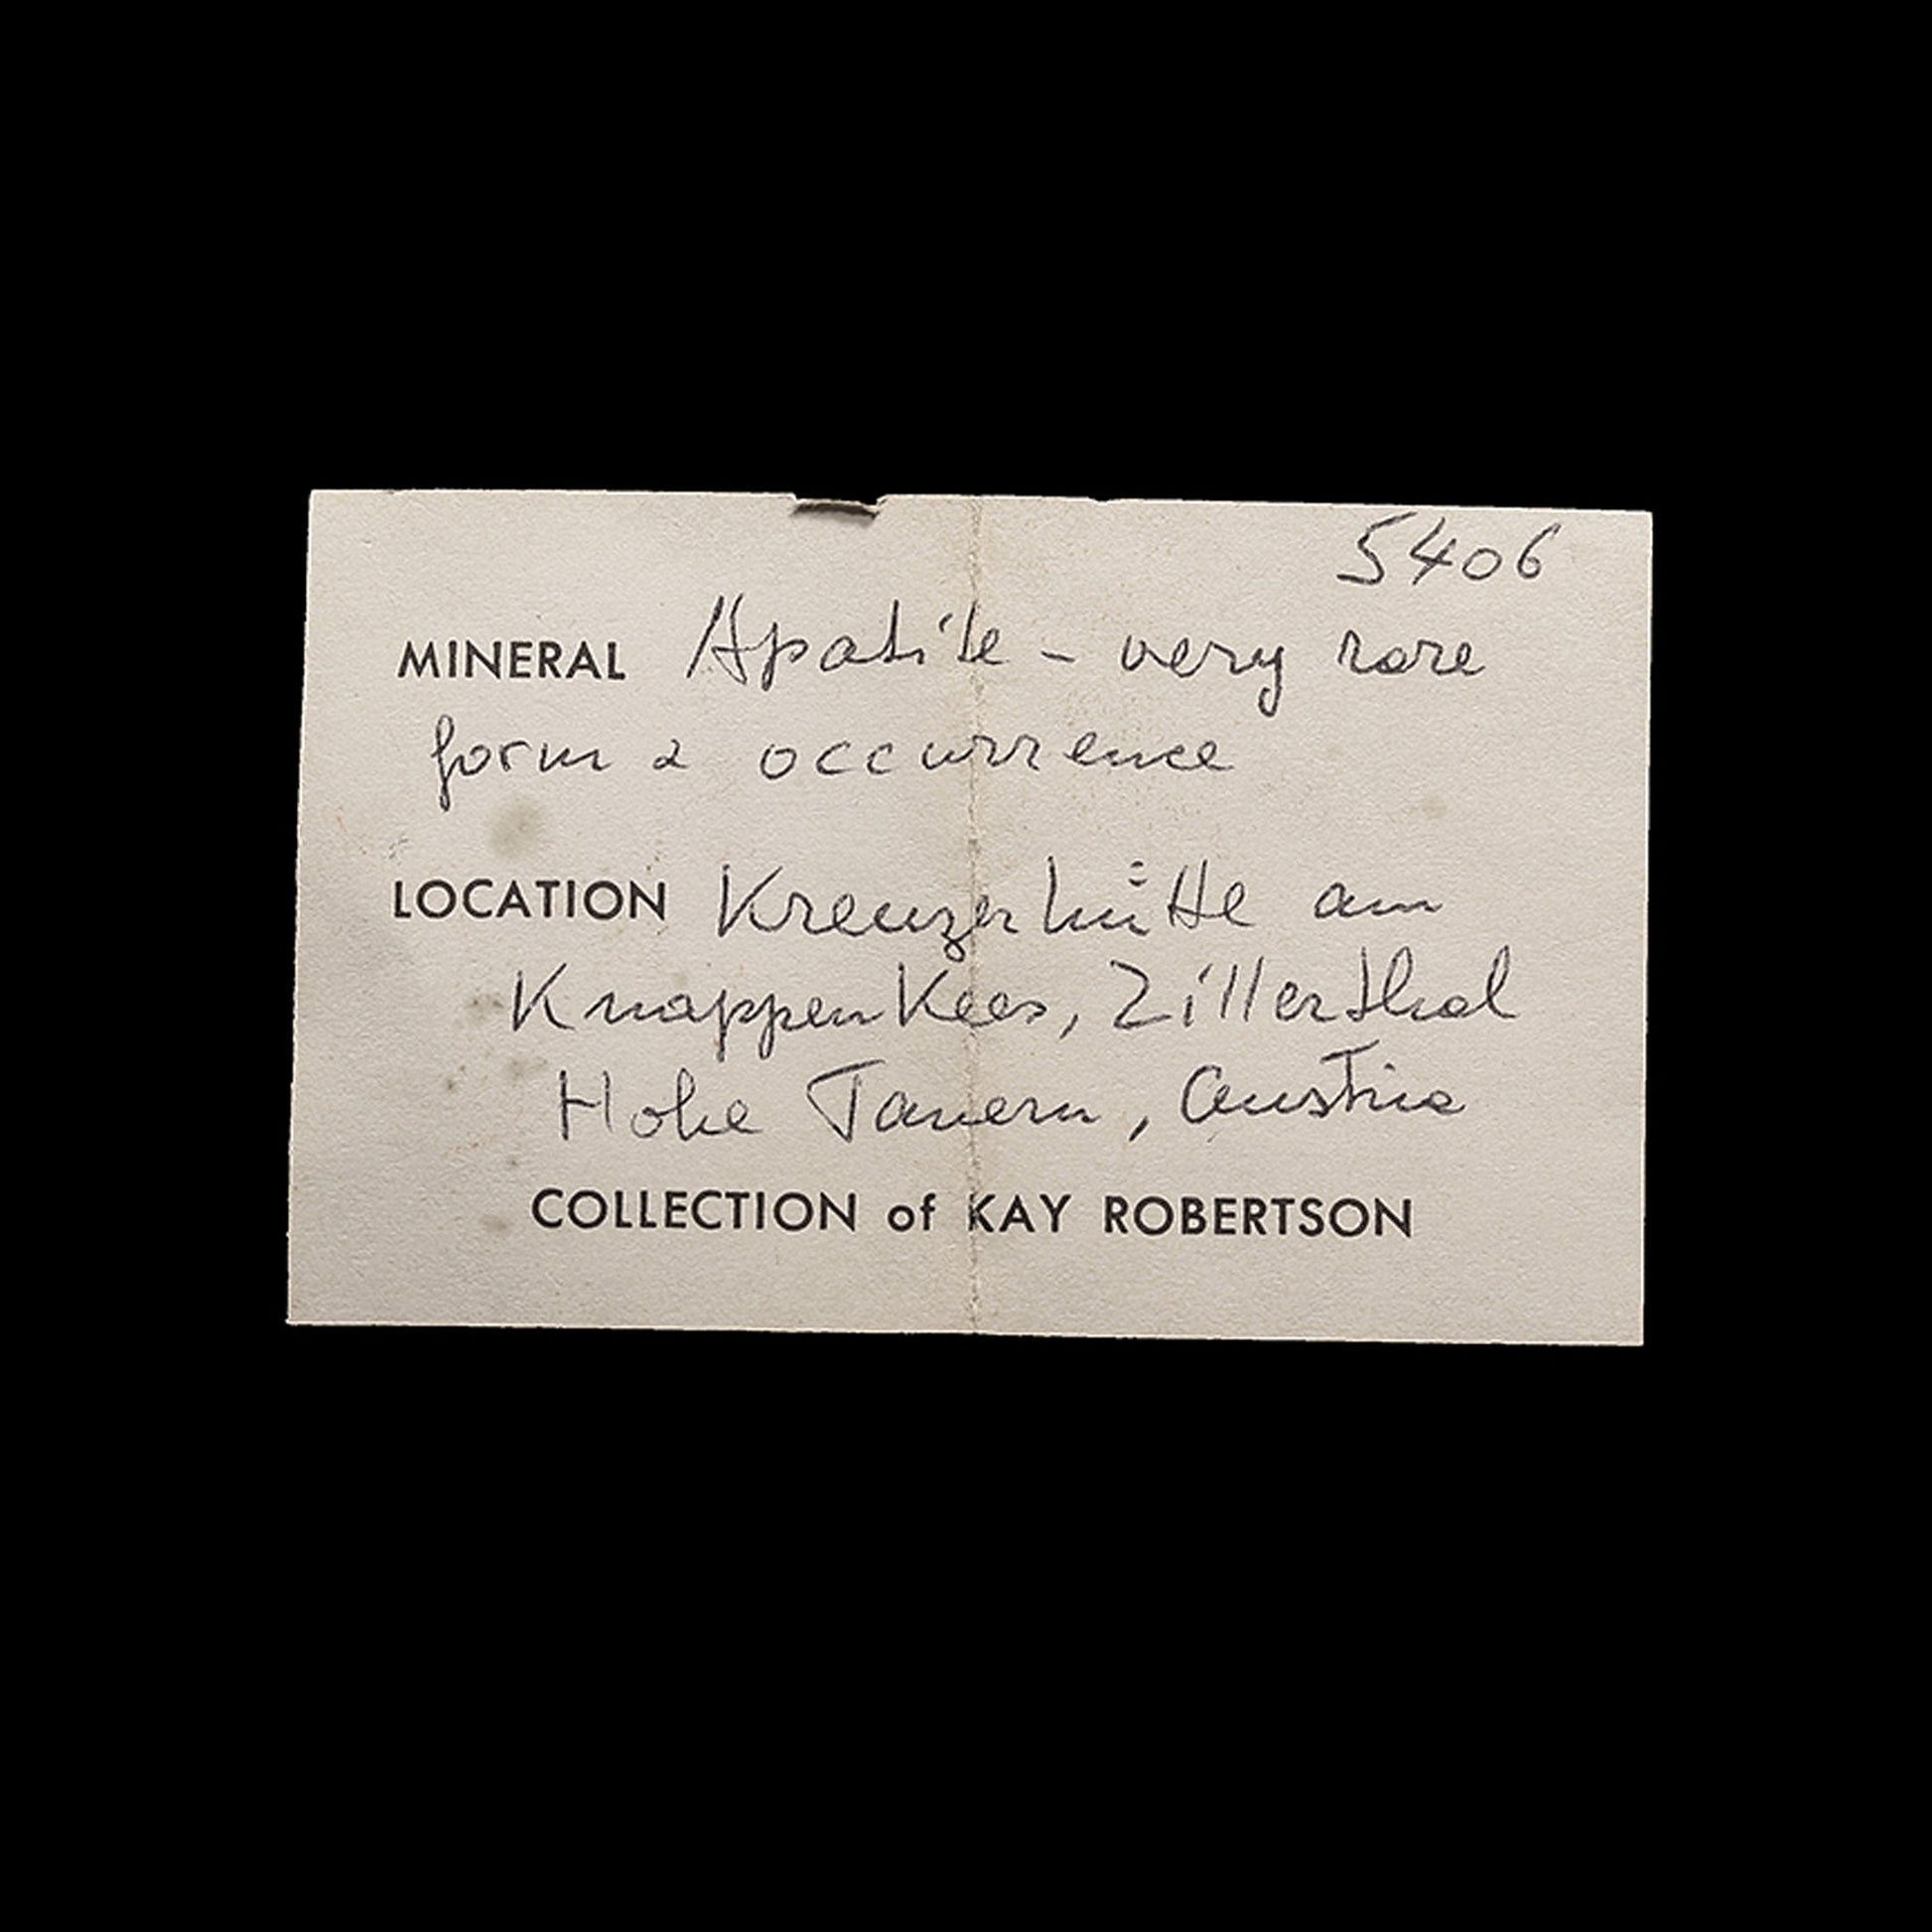 5406
MINERAL Apatite - very rare
form & occurrence
LOCATION Kreuzerhütte am
Knappenkees, Zillerthal
Hohe Tauern, Austria
COLLECTION of KAY ROBERTSON